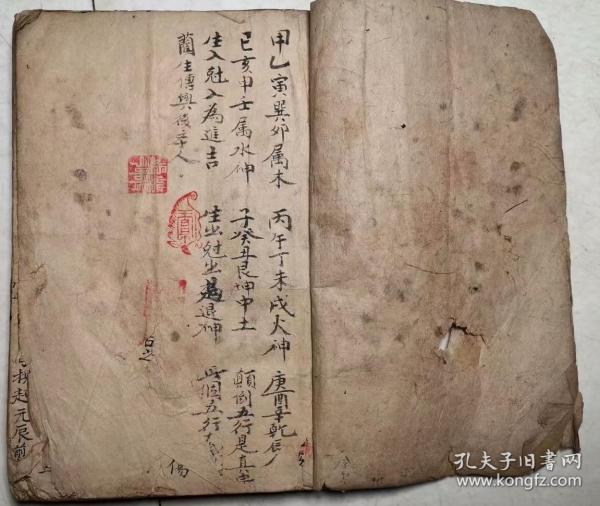 甲乙寅巽卯属木 丙午丁未戌火神 庚酉辛乾辰
巳亥甲壬属水神 子癸丑艮坤申土 顛倒五行是真
生入尅入為進吉 生出尅出退神 此個五行
蘭生傳與後
白之
楊
起元辰煎
孔夫子旧书网
www.kongfz.com